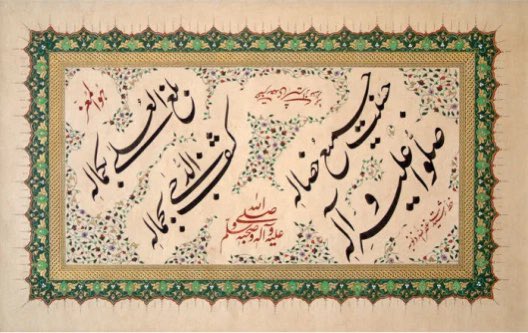 بلغ العلی بکماله
کشف الدجی بجماله
حسنت جمیع خصاله
صلوا علیه و آله
صلی الله
علیه وآله وصحبه وسلم